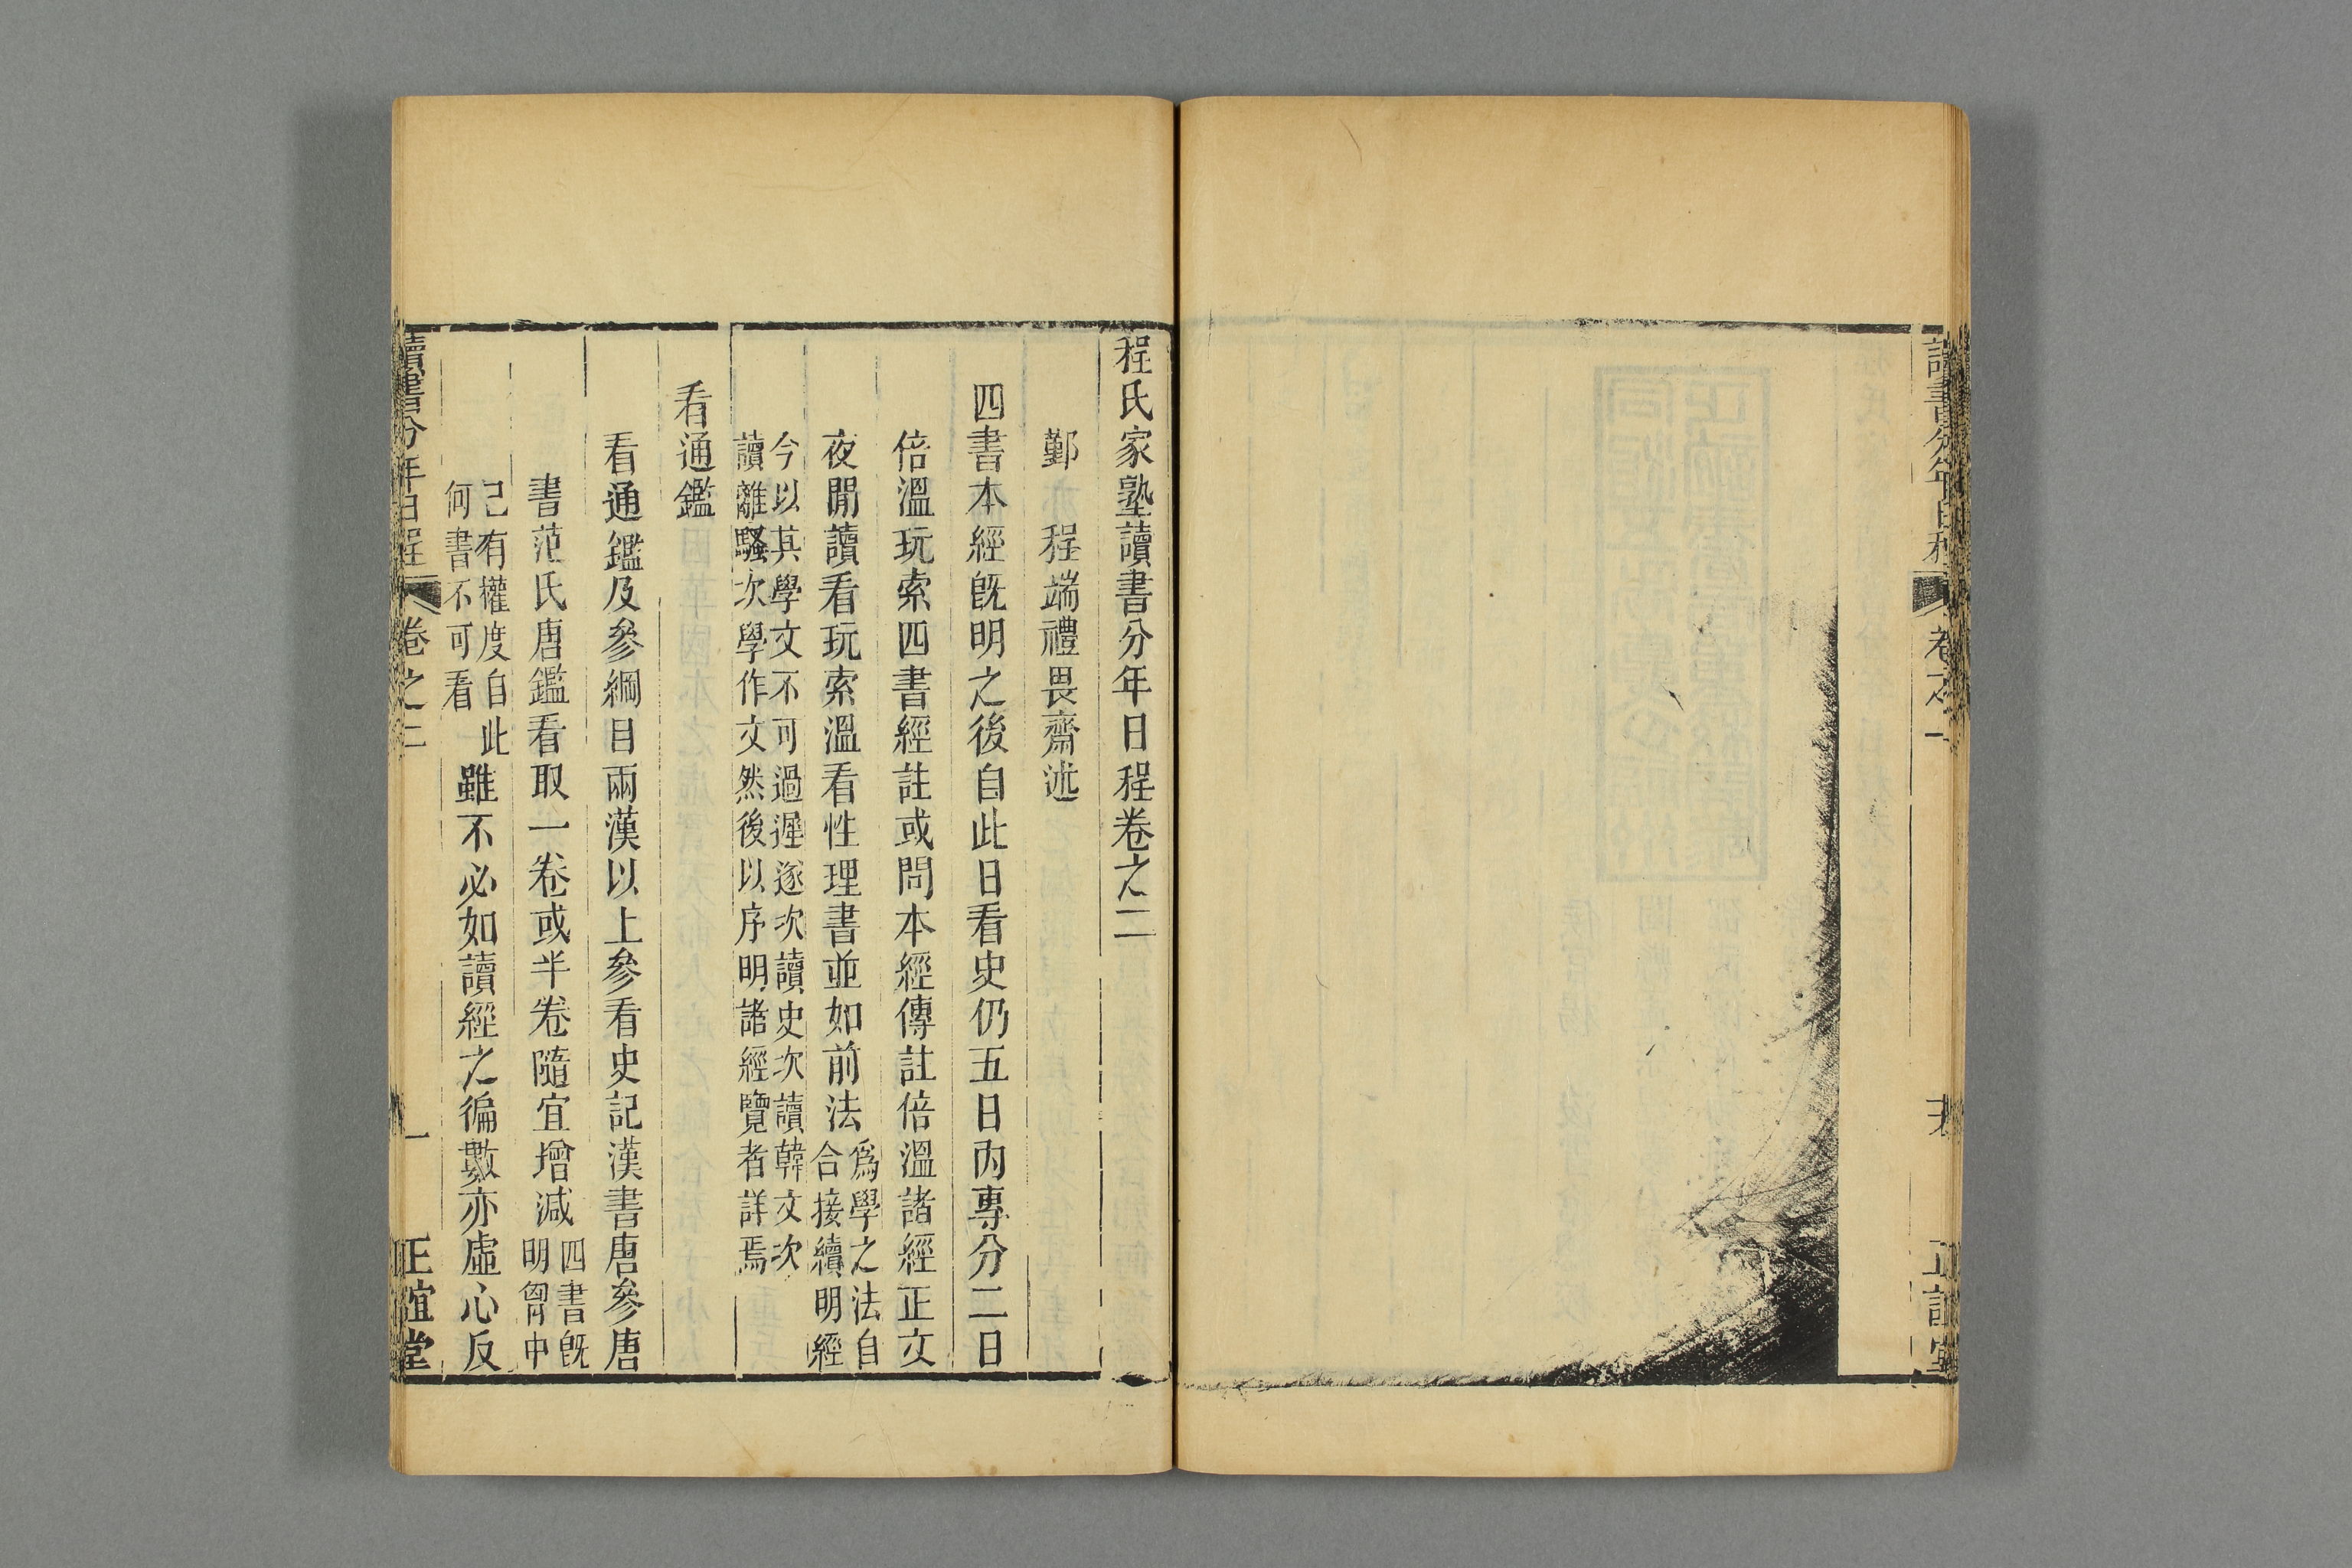 卷之一
程氏家塾讀書分年日程卷之二
鄞　程端禮畏齋述
四書本經既明之後自此日看史仍五日內專分二日
倍溫玩索四書經註或問本經傳註倍溫諸經正文
夜閒讀看玩索溫看性理書並如前法
爲學之法自
合接續明經
今以其學文不可過遲遂次讀史次讀韓文次
讀離騷次學作文然後以序明諸經覽者詳焉
看通鑑
看通鑑及參綱目兩漢以上參看史記漢書唐參唐
書范氏唐鑑看取一卷或半卷隨宜增減
四書既
明胷中
己有權度自此
何書不可看
雖不必如讀經之徧數亦虛心反
讀書分年日程
卷之二
一
正誼堂